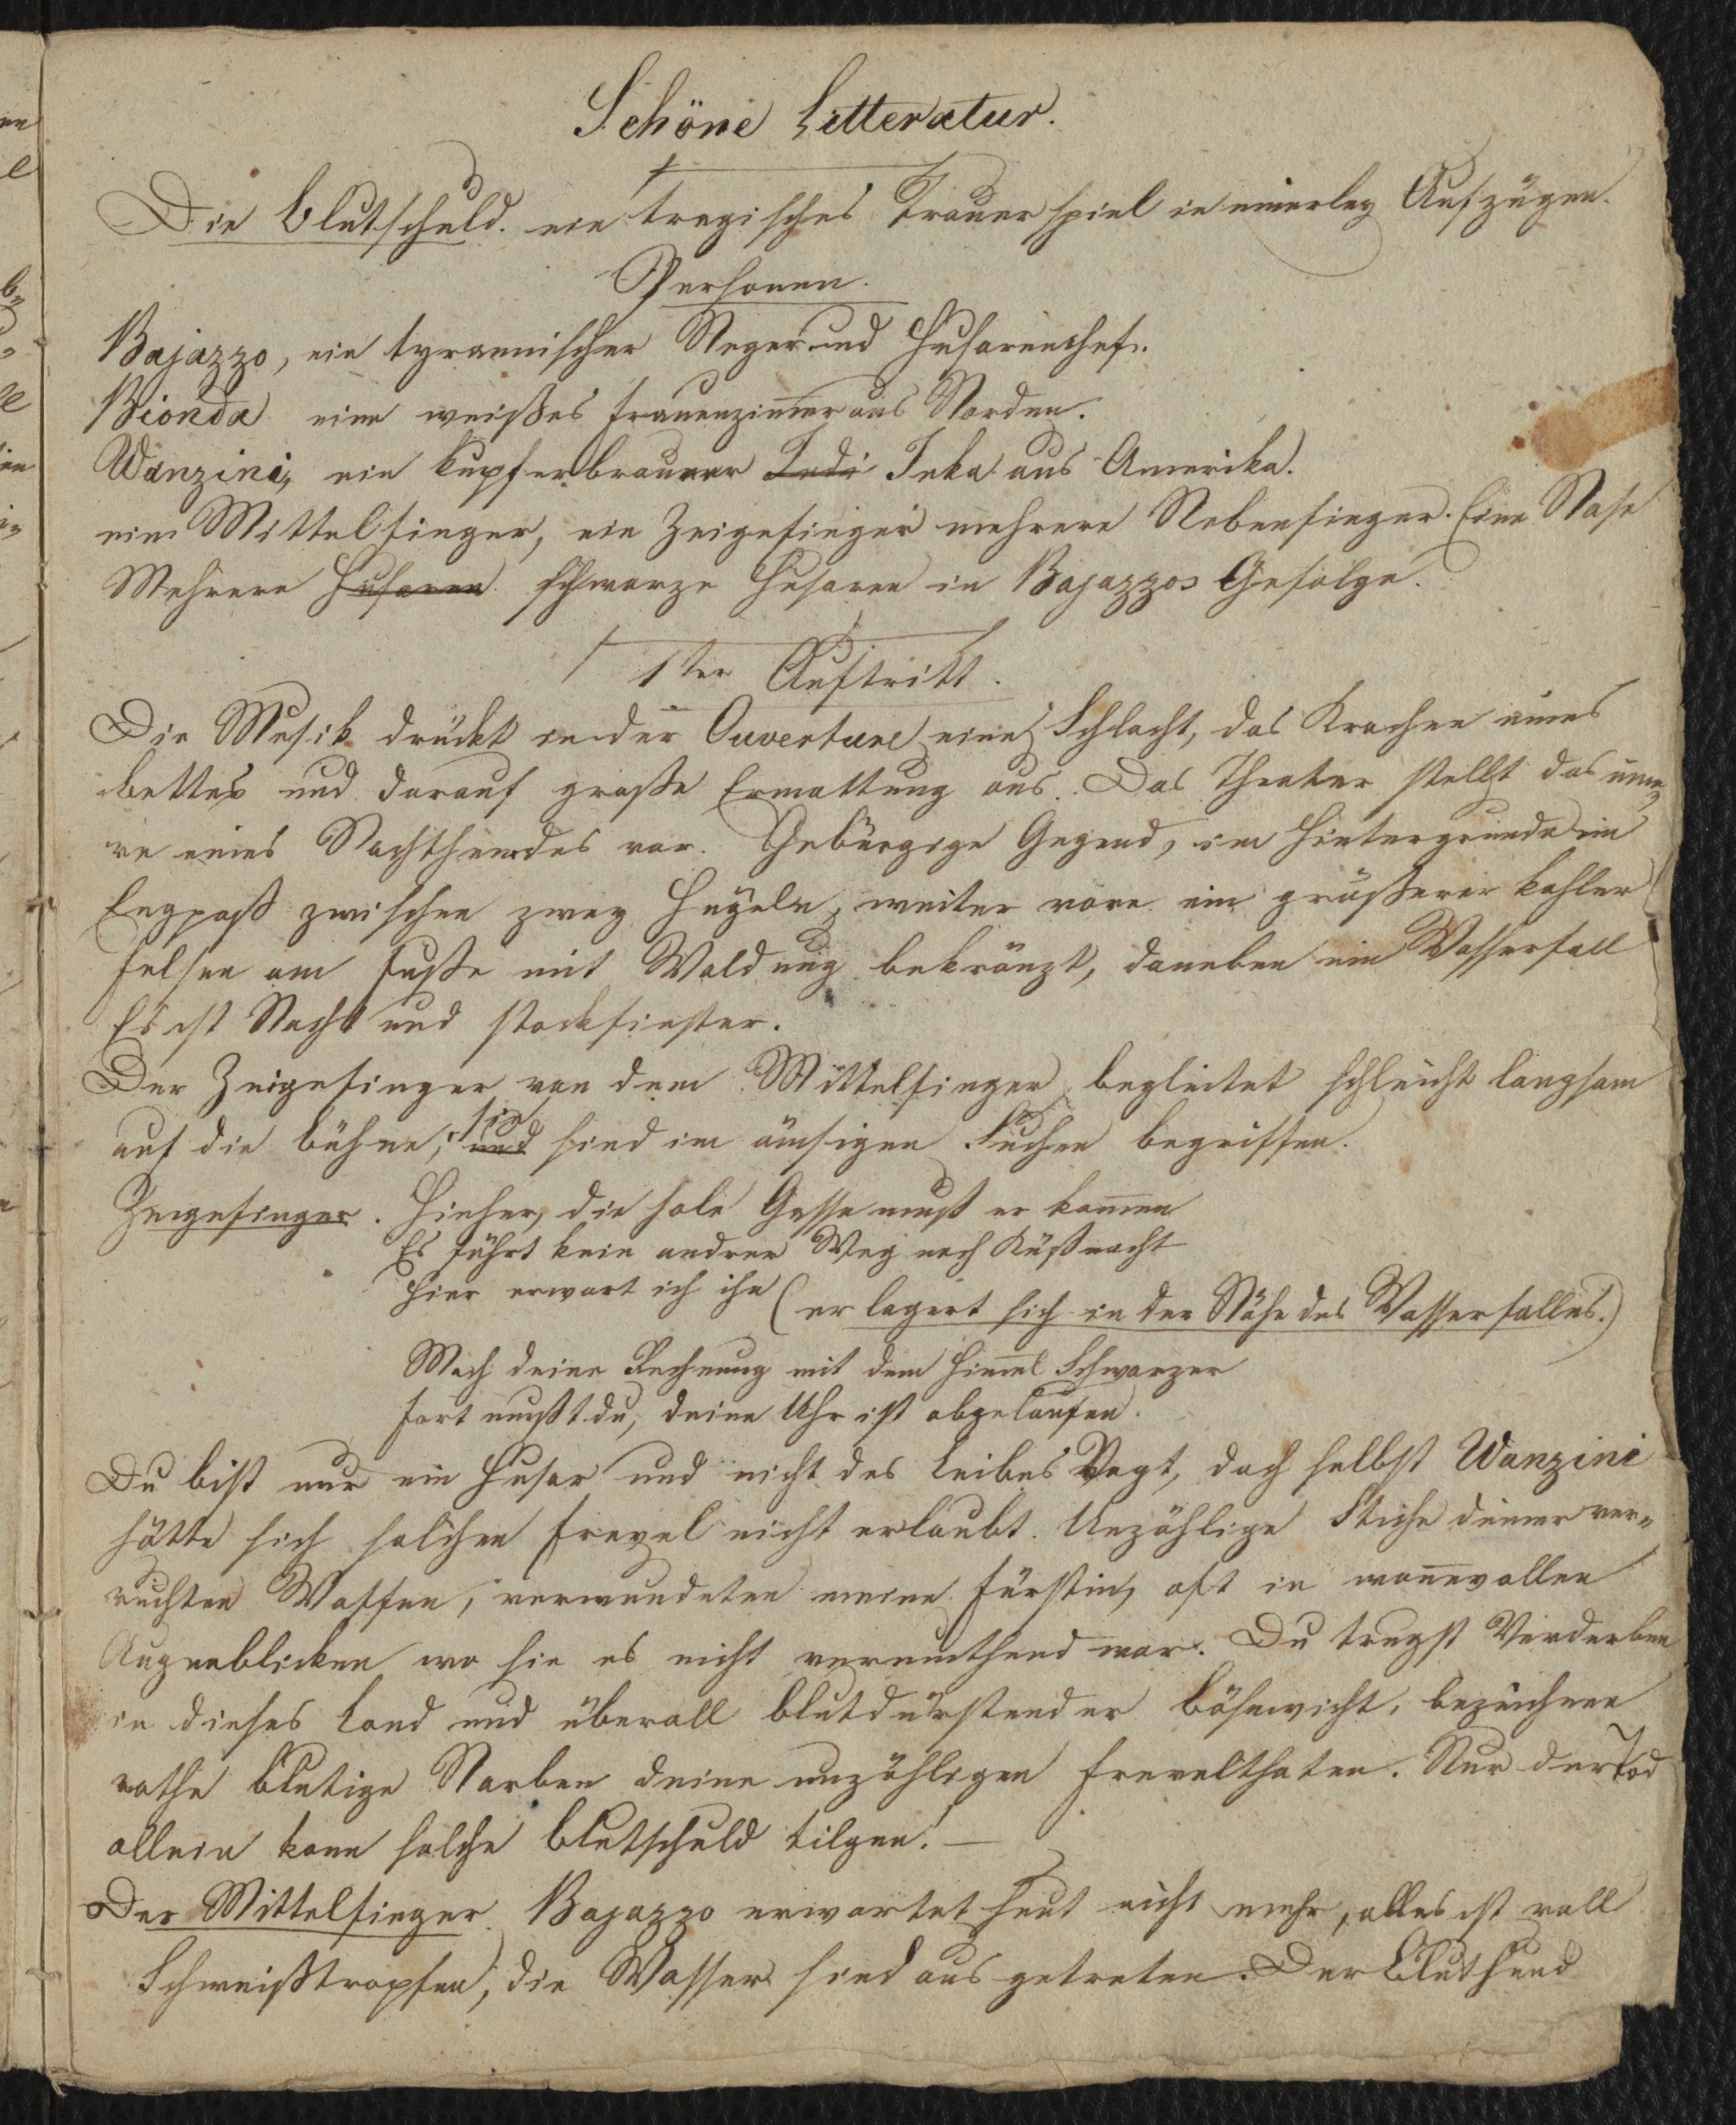 Schöne Litteratur.
Die Blutschuld. ein tragisches Trauerspiel in einerley Aufzügen.
Personen.
Bajazzo, ein tyrannischer Neger und Husarenchef.
Bionda eine weißes Frauenzimer aus Norden.
Wanzini, ein kupferbrauner Indi Inka aus Amerika.
ein Mittelfinger, ein Zeigefinger mehrere Nebenfinger. Eine Nase
Mehrere Husaren schwarze Husaren in Bajazzos Gefolge.
1ter Auftritt.
Die Musik drückt in der Ouverture eine Schlacht, das Krachen eines
Bettes und darauf große Ermattung aus. Das Theater stellt das inne,
re eines Nachthemdes vor. Gebürgige Gegend, im Hintergrunde ein
Engpaß zwischen zwey Hügeln, weiter vorn ein größerer kahler
Felsen am Fuße mit Waldung bekränzt, daneben ein Wasserfall
Es ist Nacht und stockfinster.
Der Zeigefinger von dem Mittelfinger begleitet schleicht langsam
auf die Bühne, und sie sind im ämsigen Suchen begriffen.
Zeigefinger. Hieher, die hole Gasse muß er komen
Es führt kein andrer Weg nach Küßnacht
Hier erwart ich ihn (er lagert sich in der Nähe des Wasserfalles.)
Mach deine Rechnung mit dem Himel Schwarzer
fort mußt du, deine Uhr ist abgelaufen.
Du bist nur ein Husar und nicht des Leibes Vogt, doch selbst Wanzini
hätte sich solchen Frevel nicht erlaubt. Unzählige Stiche deiner ver„
ruchten Waffen, verwundeten meine Fürstin, oft in wonevollen
Augenblicken wo sie es nicht vermuthend war. Du trugst Verderben
in dieses Land und überall blutdürstender Bösewicht, bezeichnen
rothe blutige Narben deine unzähligen Frevelthaten. Nur der Tod
allein kann solche Blutschuld tilgen! —
Der Mittelfinger. Bajazzo erwartet heut nicht mehr, alles ist voll
Schweißtropfen, die Wasser sind ausgetreten. Der Bluthund